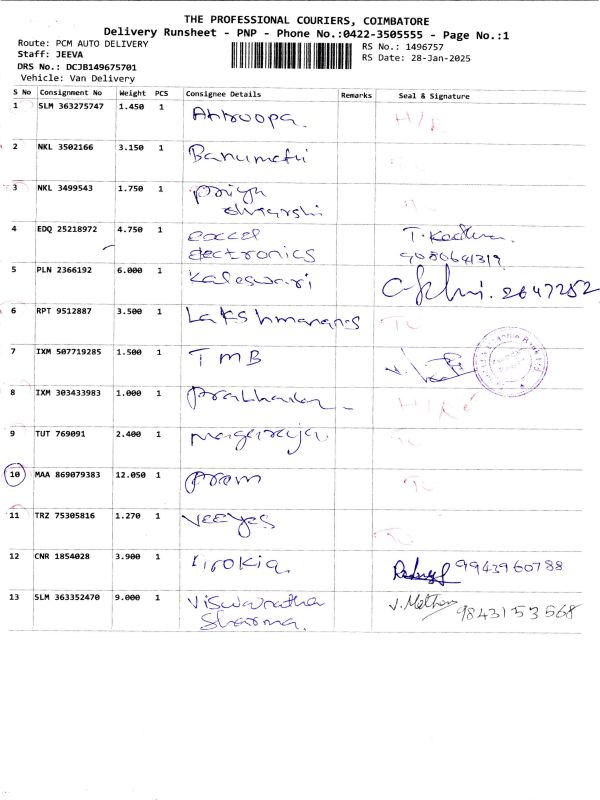 THE PROFESSIONAL COURIERS, COIMBATORE
Delivery Runsheet - PNP - Phone No.:0422-3505555 - Page No.:1
Route: PCM AUTO DELIVERY
Staff: JEEVA
DRS No.: DCJB149675701
Vehicle: Van Delivery
RS No.: 1496757
RS Date: 28-Jan-2025
S No Consignment No Weight PCS Consignee Details Remarks Seal & Signature
1 SLM 363275747 1.450 1
2 NKL 3502166 3.150 1 Banumathi
3 NKL 3499543 1.750 1 Priya
4 EDQ 25218972 4.750 1
electronics 9080641319
5 PLN 2366192 6.000 1 Kaleswari 2647252
6 RPT 9512887 3.500 1
7 IXM 507719285 1.500 1 TMB
8 IXM 303433983 1.000 1
9 TUT 769091 2.400 1
10 MAA 869079383 12.050 1 Prem
11 TRZ 75305816 1.270 1 VEEYES
12 CNR 1854028 3.900 1 9943960788
13 SLM 363352470 9.000 1 Viswanatha
Sharma. 9843153568